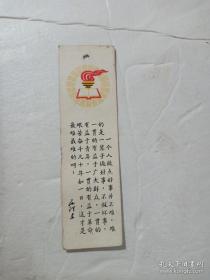 一个人做点好事并不难，难
的是一辈子做好事，不做坏事，
一贯的有益于广大群众，一贯的
有益于青年，一贯的有益于革命，
艰苦奋斗几十年如一日，这才是
最难最难的啊！
毛泽东